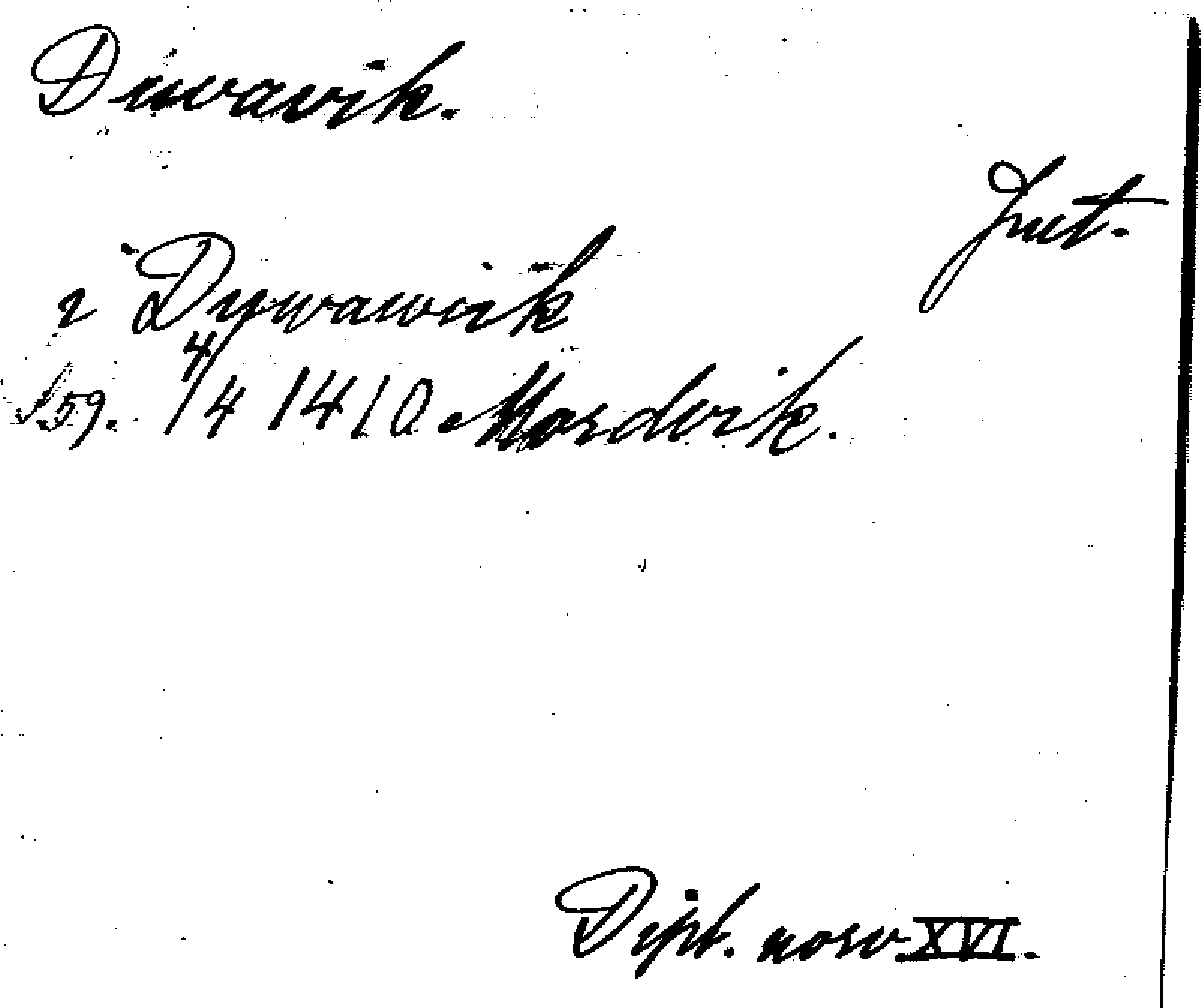 Duvavik.
Jut.
i Dywawiik
S. 59. 4/4 1410 Mordvik.
Dipl. norv. XVI.